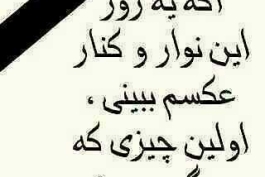 اگه یه روز
این نوار و کنار
عکسم ببینی ،
اولین چیزی که